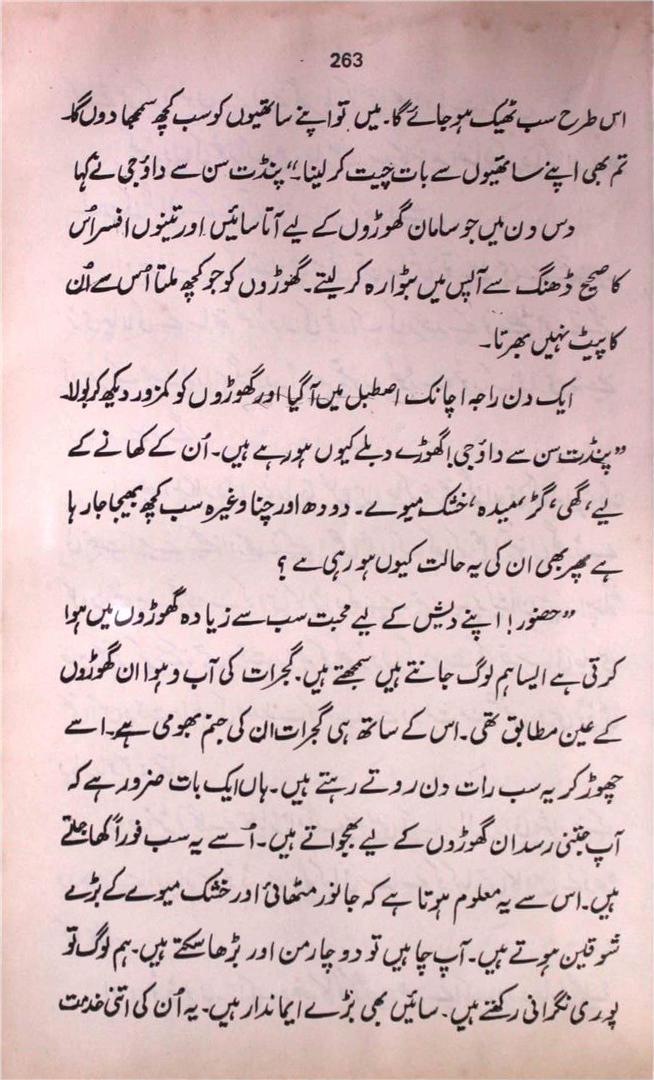 263
اس طرح سب ٹھیک ہو جائے گا۔ میں تو اپنے ساتھیوں کو سب کچھ سمجھا دوں گا۔
تم بھی اپنے ساتھیوں سے بات چیت کر لینا۔“ پنڈت سن سے داؤجی نے کہا
دس دن میں جو سامان گھوڑوں کے لیے آتا سائیں اور تینوں افسر اُس
کا صحیح ڈھنگ سے آپس میں بٹوارہ کر لیتے۔ گھوڑوں کو جو کچھ ملتا اُس سے اُن
کا پیٹ نہیں بھرتا۔
ایک دن راجہ اچانک اصطبل میں آگیا اور گھوڑوں کو کمزور دیکھ کر بولا۔
”پنڈت سن سے داؤجی! گھوڑے دبلے کیوں ہو رہے ہیں۔ اُن کے کھانے کے
لیے، گھی، گڑ، میدہ، خشک میوے۔ دودھ اور چنا وغیرہ سب کچھ بھیجا جا رہا
ہے پھر بھی ان کی یہ حالت کیوں ہو رہی ہے ؟
”حضور! اپنے دیش کے لیے محبت سب سے زیادہ گھوڑوں میں ہوا
کرتی ہے ایسا ہم لوگ جانتے ہیں سمجھتے ہیں۔ گجرات کی آب و ہوا ان گھوڑوں
کے عین مطابق تھی۔ اس کے ساتھ ہی گجرات ان کی جنم بھومی ہے۔ اسے
چھوڑ کر یہ سب رات دن روتے رہتے ہیں۔ ہاں ایک بات ضرور ہے کہ
آپ جتنی رسد ان گھوڑوں کے لیے بھجواتے ہیں۔ اُسے یہ سب فوراً کھا جاتے
ہیں۔ اس سے یہ معلوم ہوتا ہے کہ جانور مٹھائی اور خشک میوے کے بڑے
شوقین ہوتے ہیں۔ آپ چاہیں تو دو چار من اور بڑھا سکتے ہیں۔ ہم لوگ تو
پوری نگرانی رکھتے ہیں۔ سائیں بھی بڑے ایماندار ہیں۔ یہ اُن کی اتنی خدمت